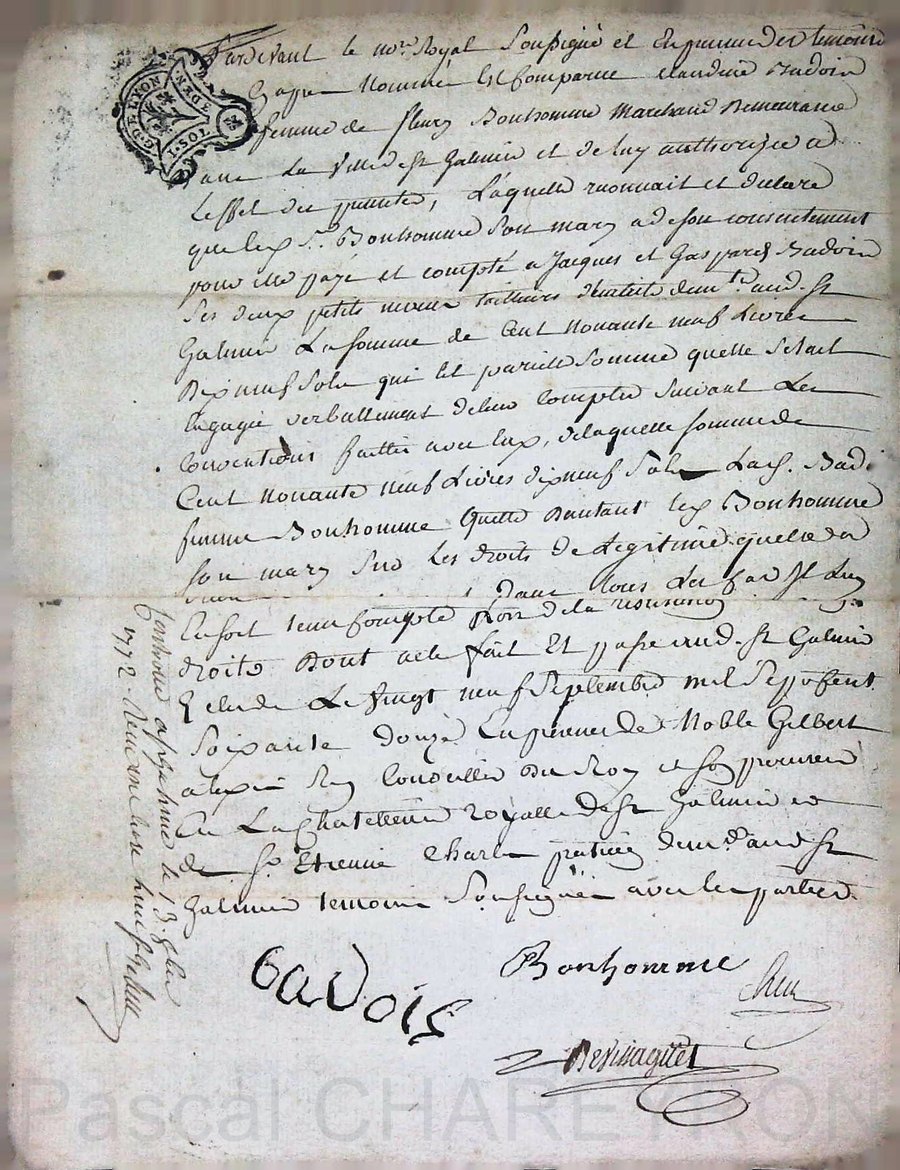 G. DE LYON
1. SOL
DEN.
Pardevant le no.re Royal Soussigné et En presence des temoins
Cy apres Nommés Est Comparue claudine Badoin
femme de fleury Bonhomme Marchand Demeurants
La ville de St Galmier et de luy authorizée a
L'effet des presentes, Laquelle reconnait et declare
que led. Sr. Bonhomme Son mary a de son consentement
pour elle payé et compté a Jacques et Gaspard Badoin
Ses deux petits neveux tailleurs d'habits demts. aud. St
Galmier La somme de Cent nonante neuf Livres
Dix neuf Sols qui Est pareille Somme quelle Setait
Engagée verballement de leur compter Suivant Les
Conventions faittes avec Eux, de laquelle somme de
Cent nonante neuf Livres dix neuf Sols Lad. Bad.
femme Bonhomme quelle Dautant led. Bonhomme
Son mary Sur Les droits de Legitime quelle
dans tous Les cas St Luy
En soit tenu Compte Lors de la
droits Dont acte fait Et passé aud. St Galmier
Etude Le vingt neuf Septembre mil Sept Cent
Soixante douze En presence de Noble Gilbert
alexis Rey Conseiller Du Roy et Son procureur
En La Chatellenie royalle de St Galmier et
de Sr. Etienne Charles praticien demt. aud. St
Galmier temoins Soussignés avec les parties.
Controllé a St galmier le 13. 8bre
1772. Reçu
Badois
Bonhomme